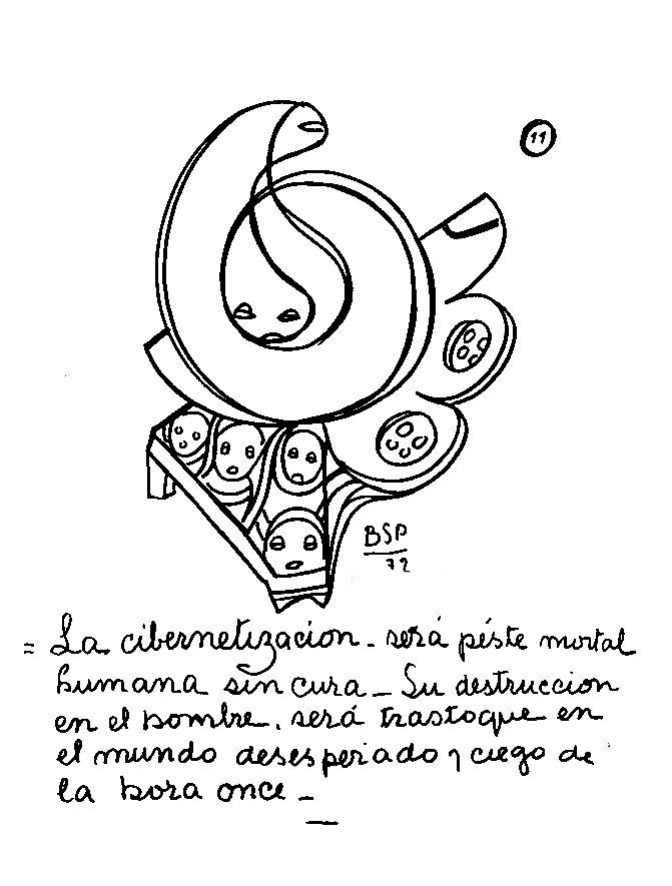 11
BSP
72
= La cibernetización - será péste mortal
humana sin cura - Su destruccion
en el hombre. será trastoque en
el mundo desesperado y ciego de
la hora once -